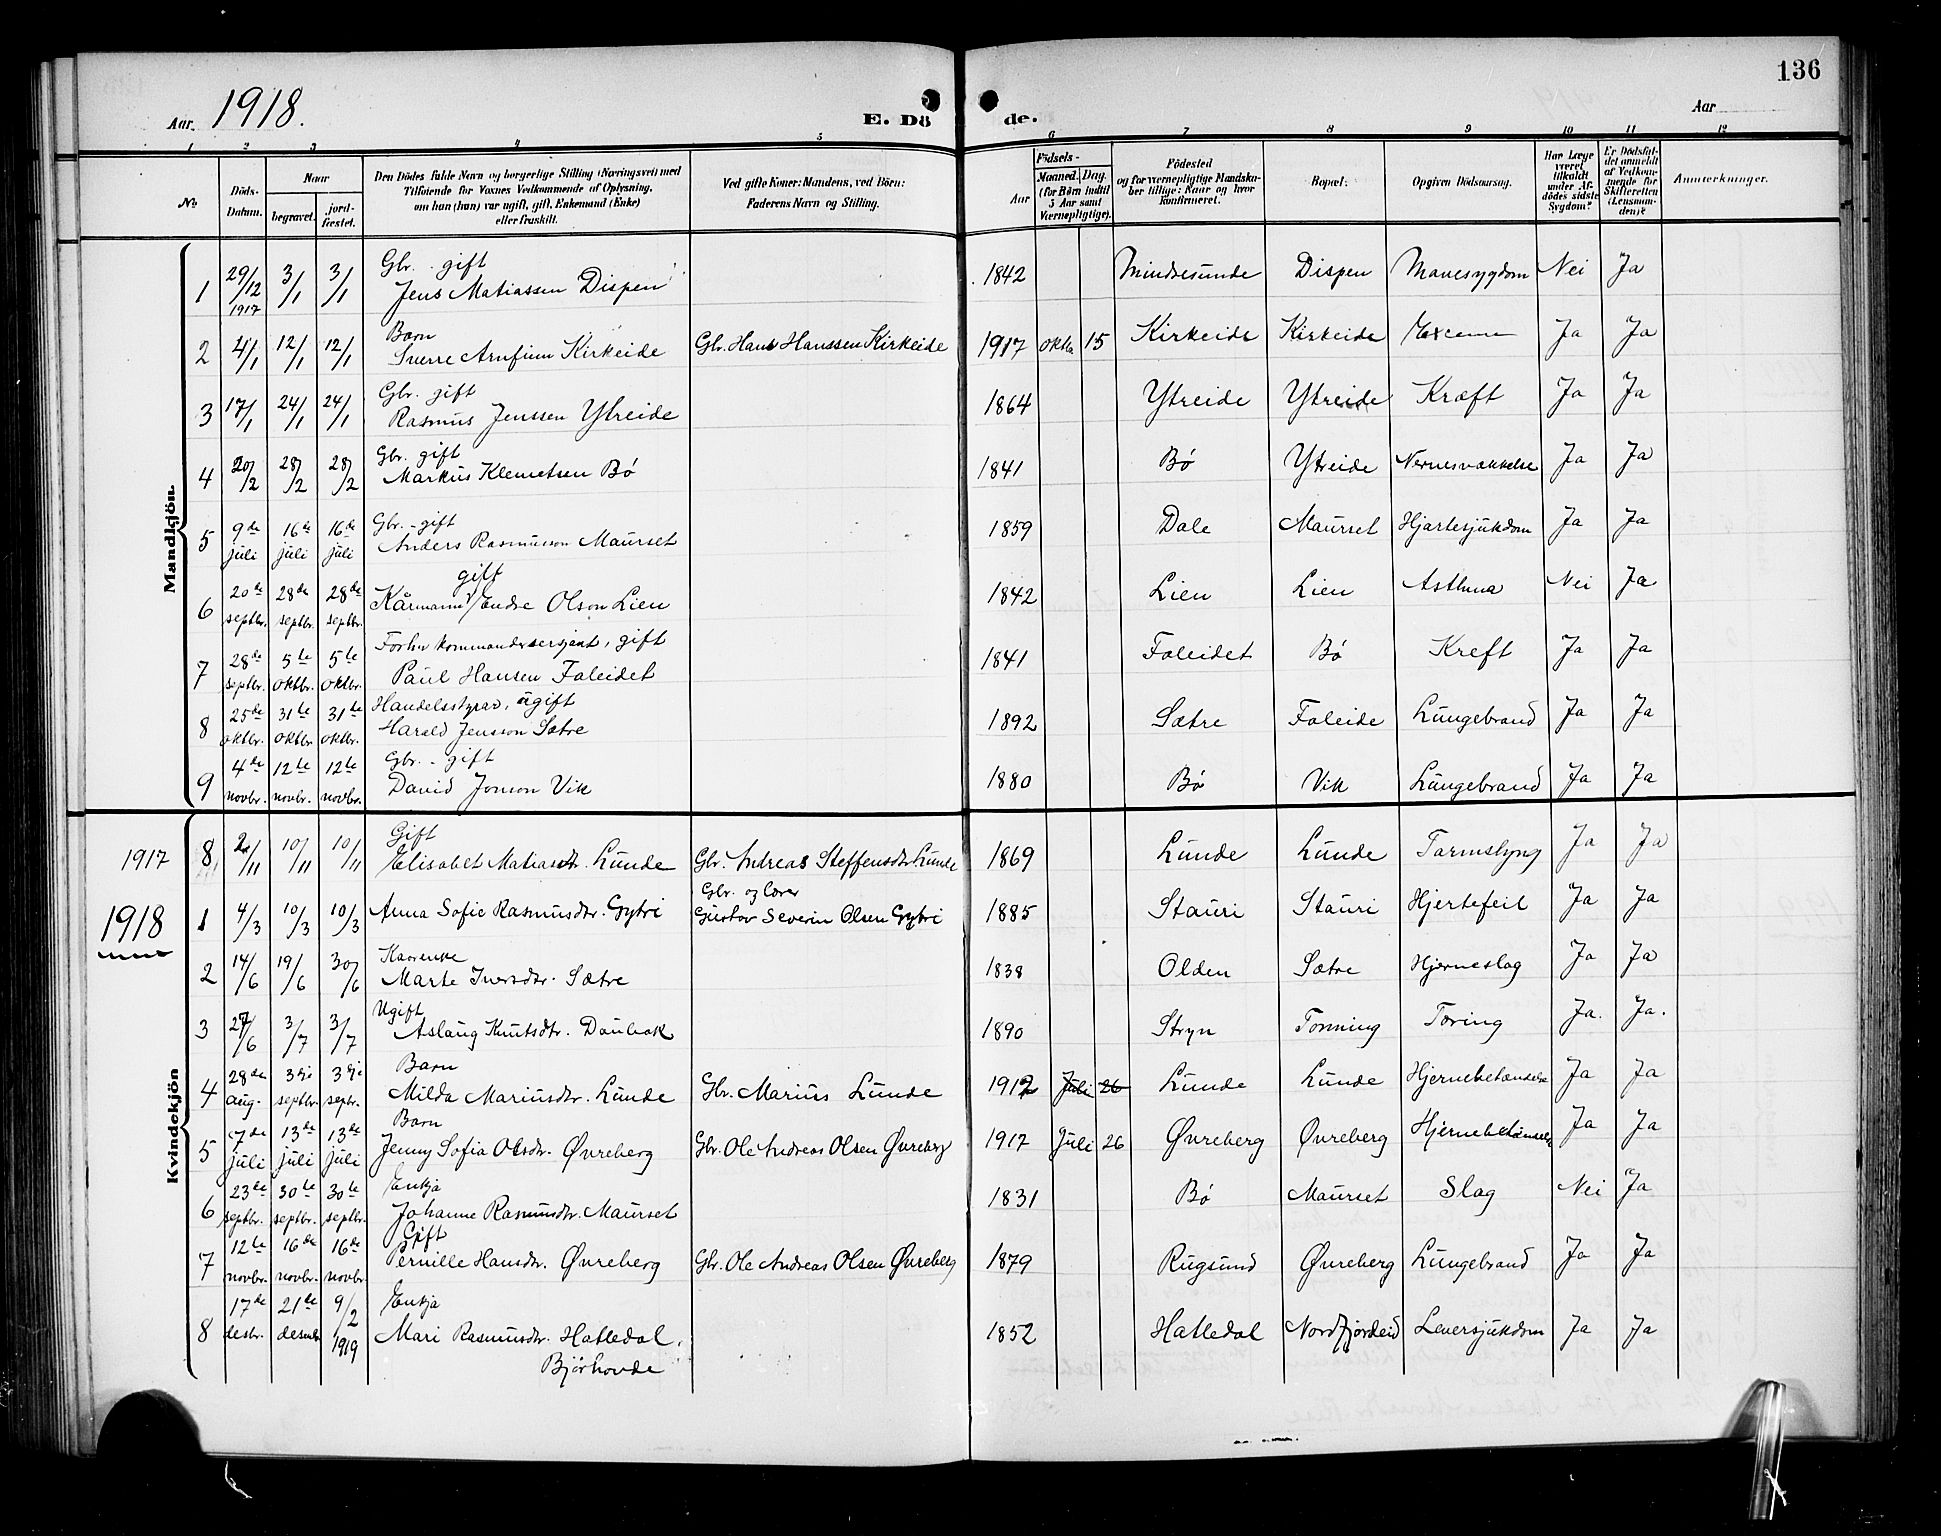 136
Aar. 1918.
E. Dö de.
Aar
1 2 3 4 5 6 7 8 9 10 11 12
No
Döds-Datum.
Naar
begravet.
jord-fæstet.
Den Dödes fulde Navn og borgerlige Stilling (Næringsvei) med
Tilföiende for Voxnes Vedkommende af Oplysning,
om han (hun) var ugift, gift, Enkemand (Enke)
eller fraskilt.
Ved gifte Koner: Mandens, ved Börn:
Faderens Navn og Stilling.
Aar
Födsels-
Maaned. Dag.
(for Börn indtil
5 Aar samt
Værnepligtige).
Födested
og for værnepligtige Mandska-
ber tillige: Naar og hvor
konfirmeret.
Bopæl.
Opgiven Dödsaarsag.
Har Læge
været
tilkaldt
under Af-
dödes sidste
Sygdom?
Er Dödsfal-
det anmeldt
af Vedkom-
mende for
Skifteretten
(Lensman-
den)?
Anmærkninger.
Mandkjön.
1 29/12 1917 3/1 3/1 Gbr. - gift
Jens Matiassen Dispen 1842 Mindresunde Dispen Mavesygdom Nei Ja
2 4/1 12/1 12/1 Barn
Sverre Arnfinn Kirkeide Gbr. Hans Hanssen Kirkeide 1917 oktb 15 Kirkeide Kirkeide Excem Ja Ja
3 17/1 24/1 24/1 Gbr. gift
Rasmus Jenssen Ytreide 1864 Ytreide Ytreide Kræft Ja Ja
4 20/2 28/2 28/2 Gbr. gift
Markus Klemetsen Bö 1841 Bö Ytreide Ja Ja
5 9de juli 16de juli 16de juli Gbr. - gift
Anders Rasmusson Maurset 1859 Dale Maurset Hjartesjukdom Ja Ja
6 20de septbr. 28de septbr. 28de septbr. gift
Kårmann Endre Olson Lien 1842 Lien Lien Asthma Nei Ja
7 28de septbr. 5te oktbr. 5te oktbr. Forhv kommandersersjent, gift
Paul Hansen Faleidet 1841 Faleidet Bö Kreft Ja Ja
8 25de oktbr. 31te oktbr. 31te oktbr. Handelsstyrar, ugift
Harald Jensson Sætre 1892 Sætre Faleide Lungebrand Ja Ja
9 4de novbr. 12te novbr. 12te novbr. Gbr. - gift
David Jonson Vik 1880 Bö Vik Lungebrand Ja Ja
Kvindekjön
1917 8 2/11 10/11 10/11 Gift
Elisabet Matiasdtr. Lunde Gbr. Andreas Steffensdtr. Lunde 1869 Lunde Lunde Tarmslyng Ja Ja
1918 1 4/3 10/3 10/3 Anna Sofie Rasmusdtr. Gytri Gbr. og lærer
Gustav Severin Olsen Gytri 1885 Stauri Stauri Hjertefeil Ja Ja
2 14/6 19/6 30/6 Kaarenke
Marte Iversdtr. Sætre 1838 Olden Sætre Hjerneslag Ja Ja
3 27/6 3/7 3/7 Ugift
Aslaug Knutsdtr. Daubak 1890 Stryn Tonning Tæring Ja. Ja.
4 28de aug. 3die septbr. 3die sepbr. Barn
Milda Mariusdtr. Lunde Gbr. Marius Lunde 1912 Juli 26 Lunde Lunde Hjernebetændelse Ja Ja
5 7de juli 13de juli 13de juli Barn
Jenny Sofia Olsdtr. Øvreberg Gbr. Ole Andreas Olsen Øvreberg 1917 Juli 26 Øvreberg Øvreberg Hjernebetændelse Ja Ja
6 23de septbr. 30te septbr. 30te septbr. Enkja
Johanne Rasmusdtr. Maurset 1831 Bö Maurset Slag Nei Ja
7 12te novbr. 16de novbr. 16de novbr. Gift
Pernille Hansdtr. Øvreberg Gbr. Ole Andreas Olsen Øvreberg 1879 Rugsund Øvreberg Lungebrand Ja Ja
8 17de desbr. 21de desembr 9/2 1919 Enkja
Mari Rasmusdtr. Hatledal. 1852 Hatledal Nordfjordeid Leversjukdom Ja Ja
Bjørhovde